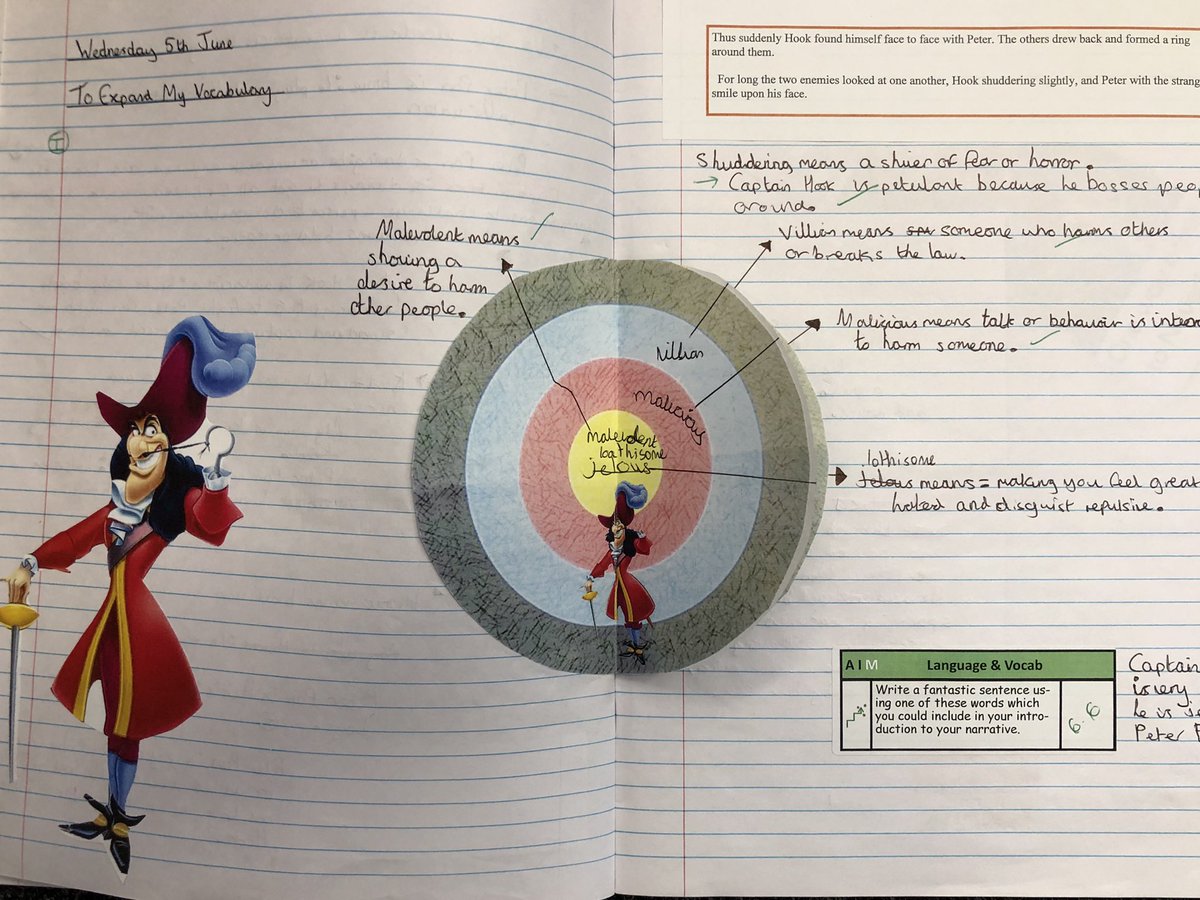 Wednesday 5th June
To Expand My Vocabulary
I
Malevolent means
showing a
desire to ham
other people.
Thus suddenly Hook found himself face to face with Peter. The others drew back and formed a ring
around them.
For long the two enemies looked at one another, Hook shuddering slightly, and Peter with the strang
smile upon his face.
Shuddering means a shier of fear or horror.
→ Captain Hook is petulant because he bosses peo
around.
Villian means someone who harms others
or breaks the law.
Malicious means talk or behavoir is inten
to harm someone.
villian
malicious
malevolent
loathisome
jelous
lothisome
Jelous means = making you feel great
hated and disguist repulsive.
AIM Language & Vocab
Write a fantastic sentence us-
ing one of these words which
you could include in your intro-
duction to your narrative.
6.6
Captain
is very
he is je
Peter P